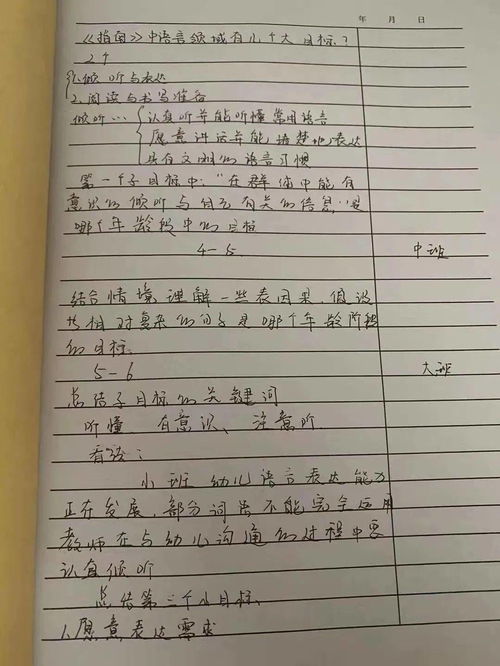 年 月 日
《指南》中语言领域有几个大目标?
2个
1.倾听与表达
2.阅读与书写准备
倾听… 认真听并能听懂常用语言
愿意讲话并能清楚地表达
具有文明的语言习惯
第一个子目标中:"在群体中能有
意识的倾听与自己有关的信息"是
哪个年龄段中的目标
4-5 中班
结合情境理解一些表因果、假设
等相对复杂的句子是哪个年龄阶段
的目标
5-6 大班
总结子目标的关键词
听懂 有意识、注意听
看法:
小班幼儿语言表达能力
正在发展,部分词语不能完全运用
教师在与幼儿沟通的过程中要
认真倾听
总结第二个小目标、
1.愿意表达需求